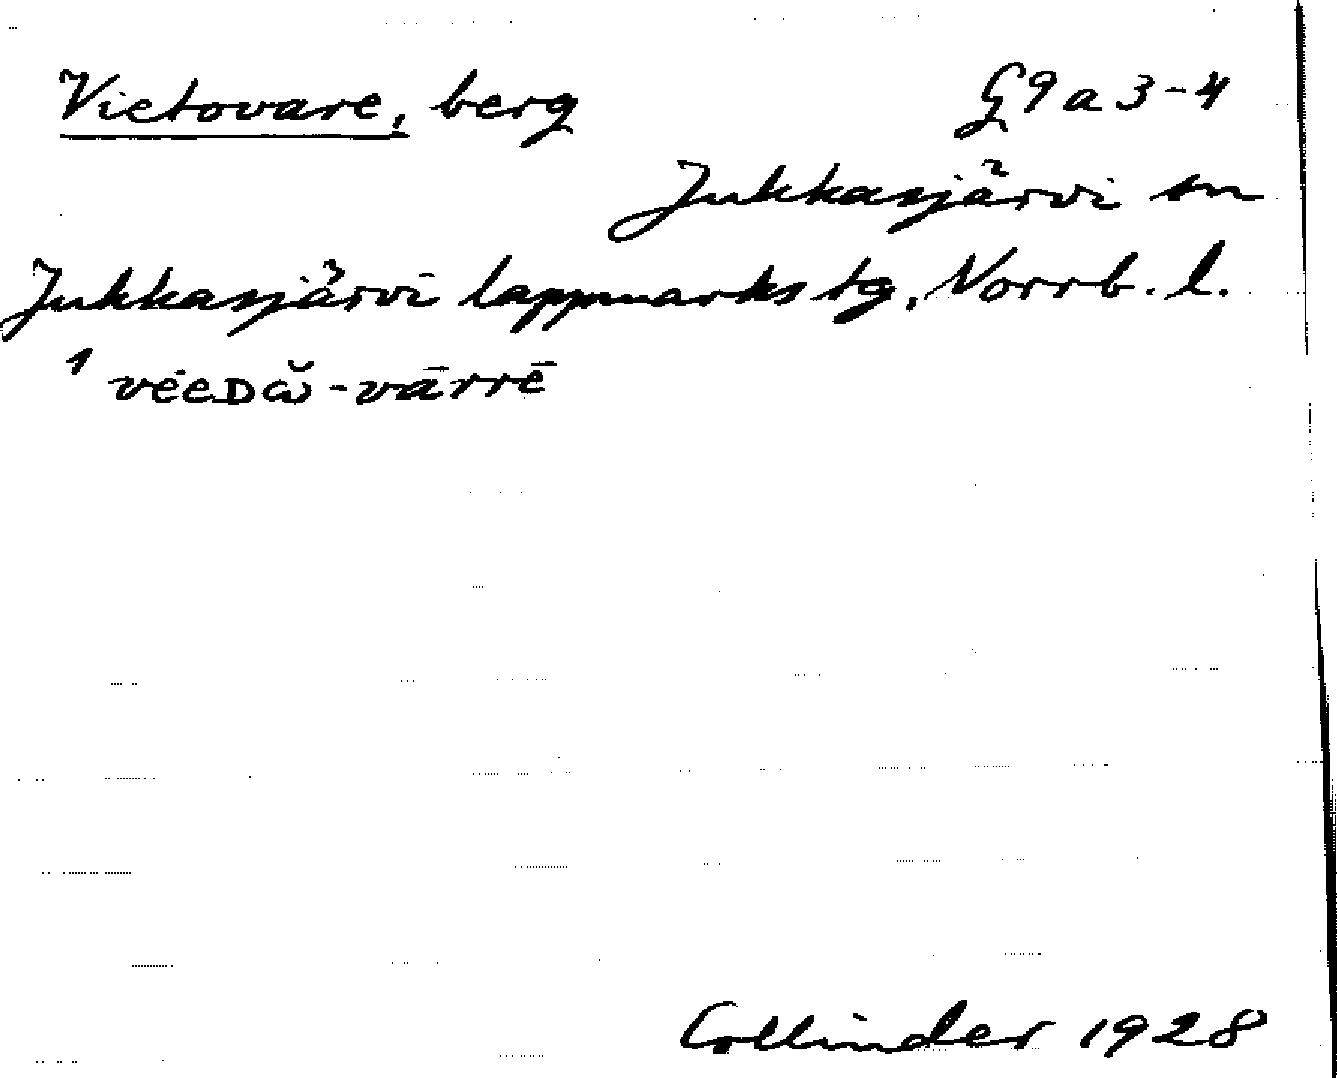 Vietovare, berg G9a3-4
Jukkasjärvi sn
Jukkasjärvi lappmarks tg, Norrb. l.
1 vėeᴅω̆-vārrē
Collinder 1928